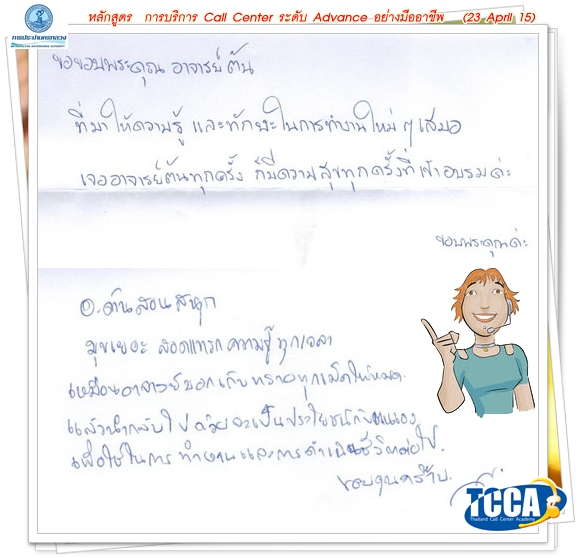 หลักสูตร การบริการ Call Center ระดับ Advance อย่างมืออาชีพ (23 April 15)
การประปานครหลวง
METROPOLITAN WATERWORKS AUTHORITY
ขอขอบพระคุณ อาจารย์ต้น
ที่มาให้ความรู้ และทักษะในการทำงานใหม่ ๆ เสมอ
เจออาจารย์ต้นทุกครั้ง ก็มีความสุขทุกครั้งที่เข้าอบรมค่ะ
ขอบพระคุณค่ะ
อ.ต้นสอนสนุก
มุขเยอะ สอดแทรกความรู้ทุกเวลา
เหมือนอาจารย์บอกเก็บทรายทุกเม็ดให้หมด
แล้วนำกลับไปด้วยจะเป็นประโยชน์กับตนเอง
เพื่อใช้ในการทำงานและการดำเนินชีวิตต่อไป.
ขอบคุนคร๊าบ.
TCCA
Thailand Call Center Academy